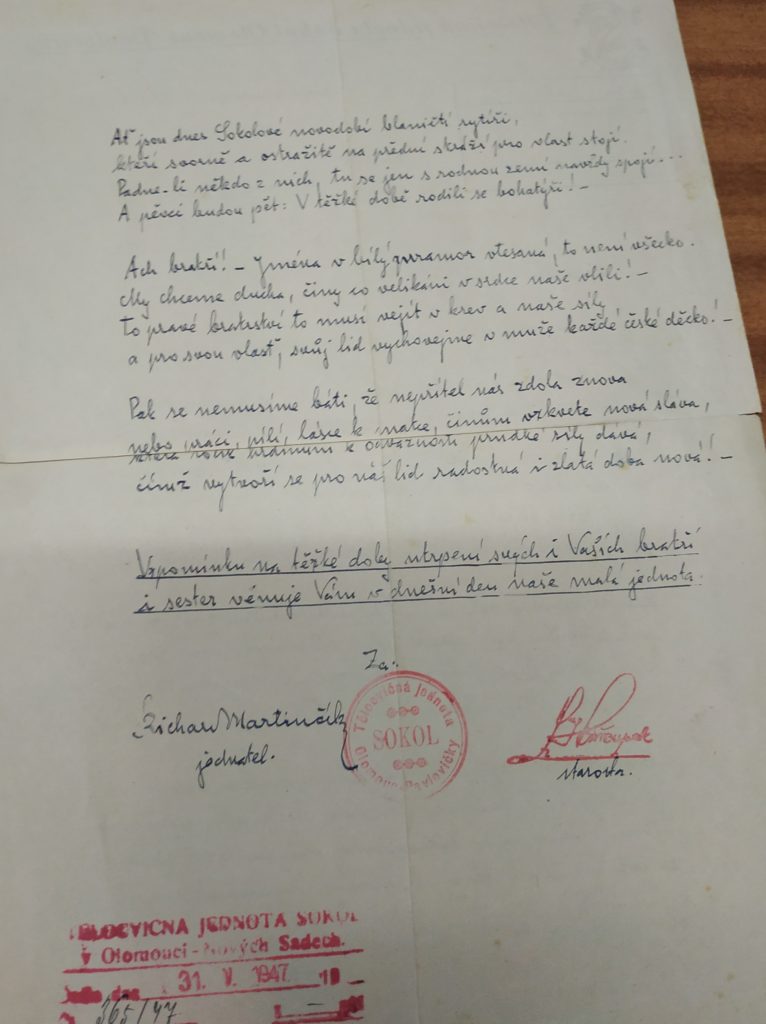 Ať jsou dnes Sokolové novodobí blaničtí rytíři,
kteří svorně a ostražitě na přední stráži pro vlast stojí.
Padne-li někdo z nich, tu se jen s rodnou zemí navždy spojí...
A pěvci budou pět: V těžké době rodili se bohatýři! -
Ach bratří! - Jména v bílý mramor vtesaná, to není všecko.
My chceme ducha, činy co velikáni v srdce naše vlili! -
To pravé bratrství to musí vejít v krev a naše síly
a pro svou vlast, svůj lid vychovejme v muže každé české děcko! -
Pak se nemusíme báti, že nepřítel nás zdolá znova
nebo práci, píli, lásce k matce, činům vzkvete nová sláva,
která k odvážnosti prudké síly dává,
čímž vytvoří se pro náš lid radostná i zlatá doba nová! -
Vzpomínku na těžké doby utrpení svých i Vašich bratří
i sester věnuje Vám v dnešní den naše malá jednota:
Za:
Richard Martinčík
jednatel.
Tělocvičná jednota
SOKOL
Olomouc-Pavlovičky
starosta.
TĚLOCVIČNA JEDNOTA SOKOL
v Olomouci - Nových Sadech.
Došlo dne 31. V. 1947 19
365/47